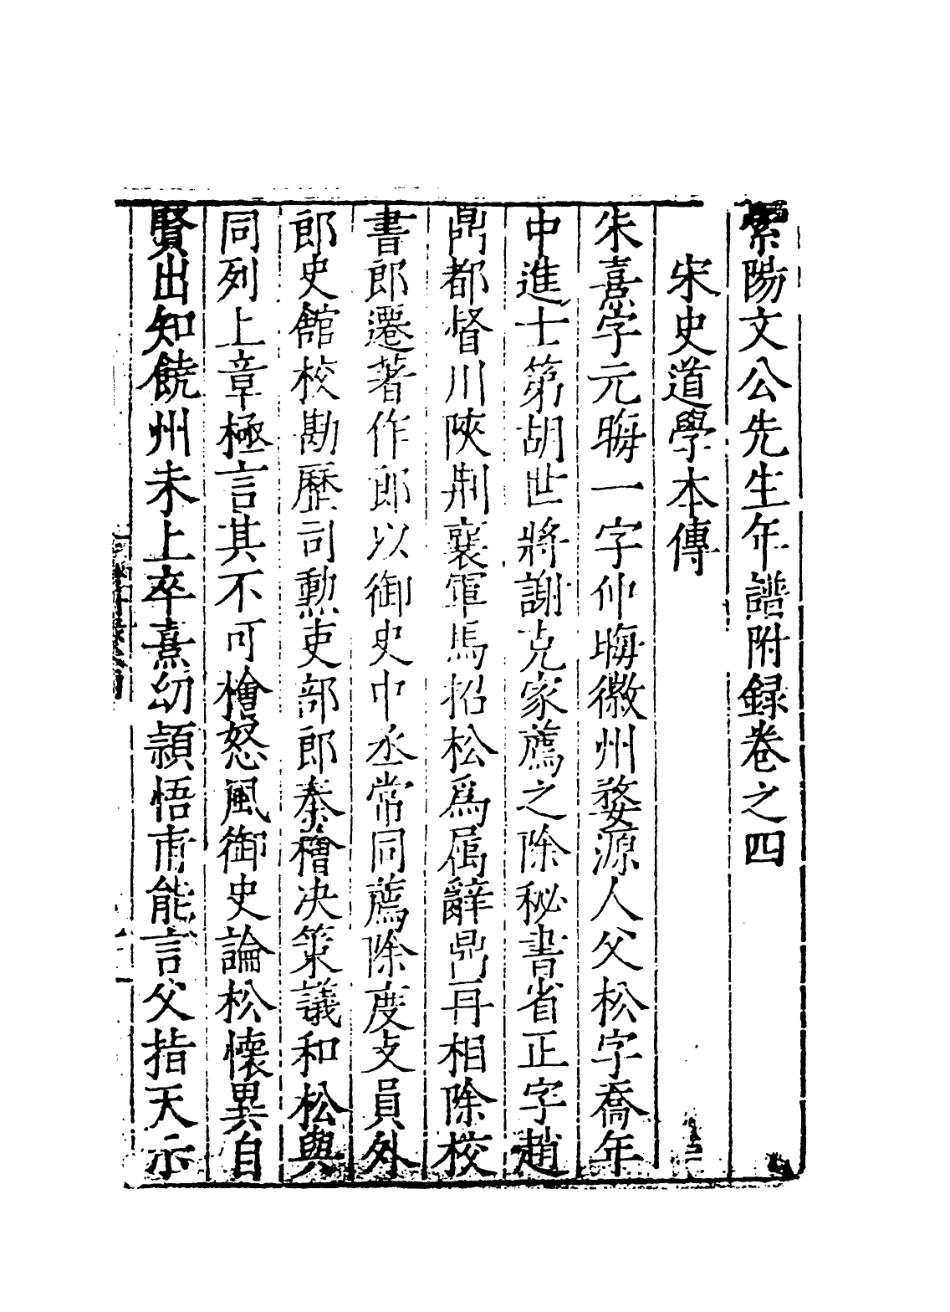 紫陽文公先生年譜附録卷之四
宋史道學本傳
朱熹字元晦一字仲晦徽州婺源人父松字喬年
中進士第胡世將謝克家薦之除秘書省正字趙
鼎都督川陜荆襄軍馬招松爲属辭鼎再相除校
書郎遷著作郎以御史中丞常同薦除度支員外
郎史館校勘歷司勲吏部郎秦檜决策議和松與
同列上章極言其不可檜怒風御史論松懷異自
賢出知饒州未上卒熹幼頴悟甫能言父指天示